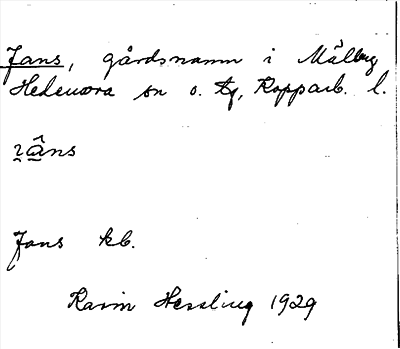 Jans, gårdsnamn i Målberg
Hedemora sn o. tg, Kopparb. l.
Jans kb.
Karin Hessling 1929